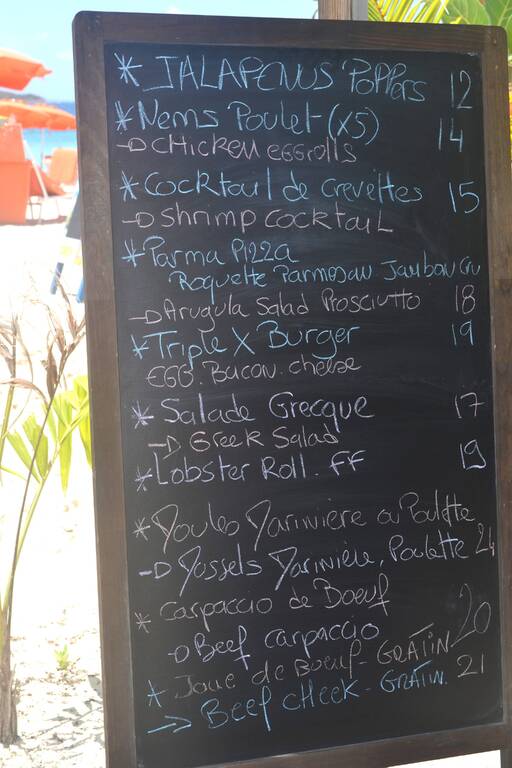 * JALAPENUS POPPERS 12
* Nems Poulet (x5) 14
→ CHICKEN EGGrolls
* Cocktail de crevettes 15
→ Shrimp cocktail
* Parma Pizza
Roquette Parmesan Jambon Cru
→ Arugula Salad Prosciutto 18
* Triple X Burger 19
EGG. Bacon. cheese
* Salade Grecque 17
→ Greek Salad
* Lobster Roll. FF 19
* Moules Marinière ou Poulette
→ Mussels Marinière, Poulette 24
* Carpaccio de Boeuf 20
→ Beef carpaccio
* Joue de Boeuf - GRATIN 21
→ BEEF CHEEK - GRATIN.